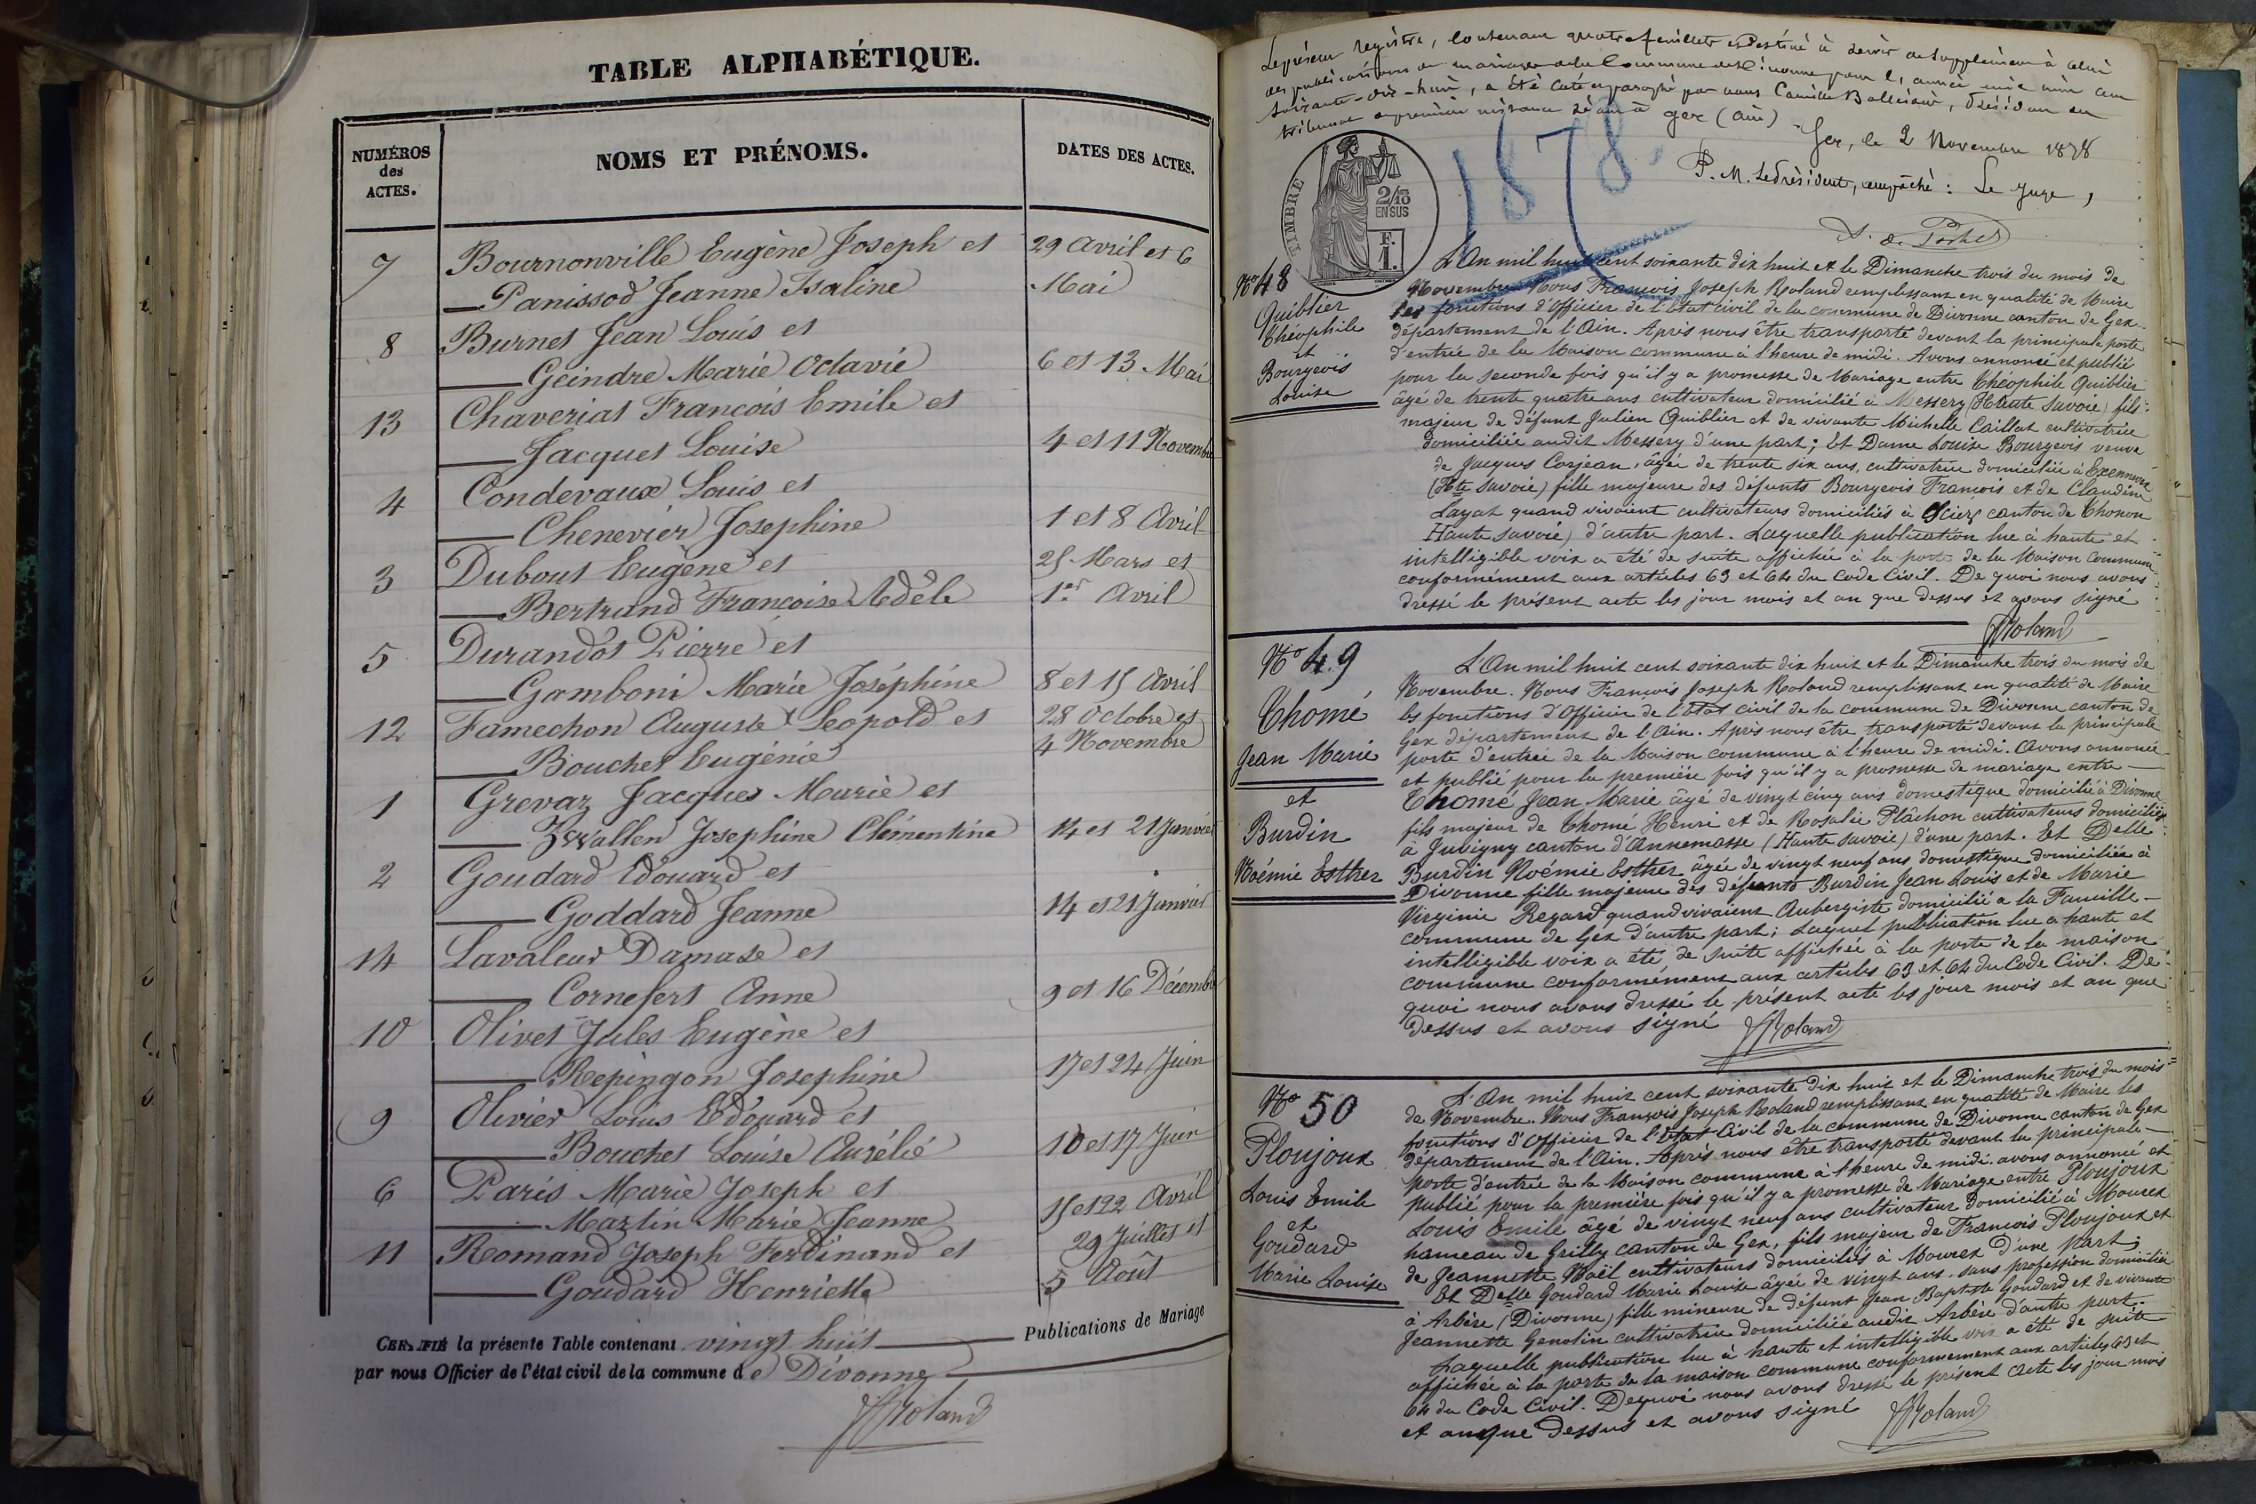 TABLE ALPHABÉTIQUE.
NUMÉROS des ACTES.
NOMS ET PRÉNOMS.
DATES DES ACTES.
7 Bournonville Eugène Joseph et 29 Avril et 6
Panissod Jeanne Isaline Mai
8 Burnet Jean Louis et
Geindre Marie Octavie 6 et 13 Mai
13 Chaveriat François Emile et
Jacquet Louise 4 et 11 Novembre
4 Condevaux Louis et
Chenevier Josephine 1 et 8 Avril
3 Dubout Eugène et 25 Mars et
Bertrand Françoise Adèle 1er Avril
5 Durandot Pierre et
Gamboni Marie Joséphine 8 et 15 Avril
12 Famechon Auguste Leopold et 28 Octobre et
Bouchet Eugénie 4 Novembre
1 Grevaz Jacques Marie et
Zwallen Josephine Clémentine 14 et 21 Janvier
2 Goudard Edouard et
Goddard Jeanne 14 et 21 Janvier
14 Lavaleur Damase et
Cornefert Anne 9 et 16 Décembre
10 Olivet Jules Eugène et
Repingon Josephine 17 et 24 Juin
9 Olivier Louis Edouard et
Bouchet Louise Aurélie 10 et 17 Juin
6 Paris Marie Joseph et
Martin Marie Jeanne 15 et 22 Avril
11 Romand Joseph Ferdinand et 29 Juillet et
Goudard Henriette 5 Août
CERTIFIÉ la présente Table contenant vingt huit Publications de Mariage
par nous Officier de l'état civil de la commune de Divonne
JRoland
Le présent registre, contenant quatre feuillets et destiné à servir de supplément à celui
des publications de mariage de la Commune de Divonne pour l'année mil huit cent
soixante-dix-huit, a été coté et paraphé par nous Camille Balleidier, Président du
tribunal de première instance séant à Gex (Ain)
Gex, le 2 Novembre 1878
P. M. Le Président, empêché : Le Juge,
1878
TIMBRE
2/10 EN SUS
F. 1.
No 48
Quiblier
Théophile
et
Bourgeois
Louise
L'An mil huit cent soixante dix huit et le Dimanche trois du mois de
Novembre Nous François Joseph Roland remplissant en qualité de Maire
les fonctions d'Officier de l'état civil de la commune de Divonne canton de Gex
département de l'Ain. Après nous être transporté devant la principale porte
d'entrée de la Maison commune à l'heure de midi. Avons annoncé et publié
pour la seconde fois qu'il y a promesse de Mariage entre Théophile Quiblier
âgé de trente quatre ans cultivateur domicilié à Messery (Haute Savoie) fils
majeur de défunt Julien Quiblier et de vivante Michelle Caillat cultivatrice
domiciliée audit Messery d'une part ; Et Dame Louise Bourgeois veuve
de Jacques Corjean, âgée de trente six ans, cultivatrice domiciliée à Excenevex
(Hte Savoie) fille majeure des défunts Bourgeois François et de Claudine
Layat quand vivaient cultivateurs domiciliés à Sciez canton de Thonon
Haute Savoie) d'autre part. Laquelle publication lue à haute et
intelligible voix a été de suite affichée à la porte de la Maison Commune
conformément aux articles 63 et 64 du Code Civil. De quoi nous avons
dressé le présent acte les jour mois et an que dessus et avons signé
JRoland
No 49
Thomé
Jean Marie
et
Burdin
Noémie Esther
L'An mil huit cent soixante dix huit et le Dimanche trois du mois de
Novembre. Nous François Joseph Roland remplissant en qualité de Maire
les fonctions d'Officier de l'état civil de la commune de Divonne canton de
Gex département de l'Ain. Après nous être transporté devant la principale
porte d'entrée de la Maison commune à l'heure de midi. Avons annoncé
et publié pour la première fois qu'il y a promesse de mariage entre
Thomé Jean Marie âgé de vingt cinq ans domestique domicilié à Divonne
fils majeur de Thomé Henri et de Rosalie Plâchon cultivateurs domiciliés
à Juvigny canton d'Annemasse (Haute Savoie) d'une part. Et Delle
Burdin Noémie Esther âgée de vingt neuf ans domestique domiciliée à
Divonne fille majeure des défunts Burdin Jean Louis et de Marie
Virginie Regard quand vivaient Aubergiste domicilié à la Faucille
commune de Gex d'autre part ; Laquel publication lue à haute et
intelligible voix a été de suite affichée à la porte de la maison
commune conformément aux articles 63 et 64 du Code Civil. De
quoi nous avons dressé le présent acte les jour mois et an que
dessus et avons signé JRoland
No 50
Ploujoux
Louis Emile
et
Goudard
Marie Louise
L'An mil huit cent soixante dix huit et le Dimanche trois du mois
de Novembre. Nous François Joseph Roland remplissant en qualité de Maire les
fonctions d'Officier de l'état Civil de la commune de Divonne canton de Gex
département de l'Ain. Après nous être transporté devant la principale
porte d'entrée de la Maison commune à l'heure de midi avons annoncé et
publié pour la première fois qu'il y a promesse de Mariage entre Ploujoux
Louis Emile âgé de vingt neuf ans cultivateur domicilié à Mourex
hameau de Grilly canton de Gex, fils majeur de François Ploujoux et
de Jeannette Noël cultivateurs domiciliés à Mourex d'une part ;
Et Delle Goudard Marie Louise âgée de vingt ans, sans profession domiciliée
à Arbère (Divonne) fille mineure de défunt Jean Baptiste Goudard et de vivante
Jeannette Genolin cultivatrice domiciliée audit Arbère d'autre part.
Laquelle publication lue à haute et intelligible voix a été de suite
affichée à la porte de la maison commune conformément aux articles 63 et
64 du Code Civil. De quoi nous avons dressé le présent acte les jour mois
et an que dessus et avons signé JRoland